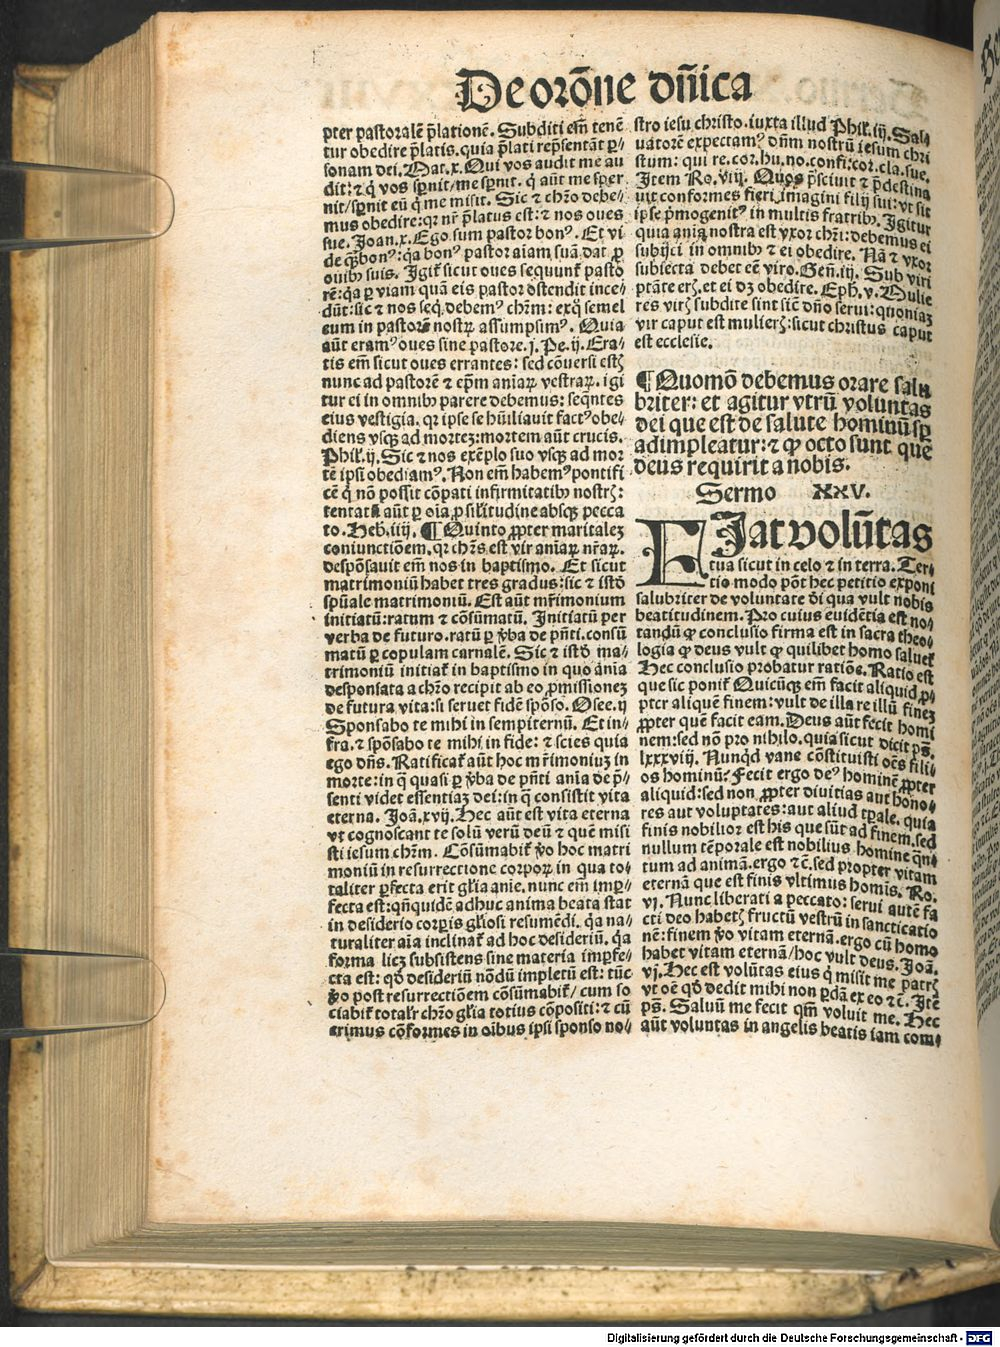 De orōne dn̄ica
pter pastoralē p̄lationē. Subditi em̄ tenē
tur obedire p̄latis. quia p̄lati rep̄sentāt ꝑ⸗
sonam dei. Mat. x. Qui vos audit me au
dit: ⁊ q̇ vos sp̄nit/me sp̄nit. q̇ aūt me sper
nit/sp̄nit eū q̇ me misit. Sic ⁊ chr̄o debe⸗
mus obedire: qꝛ nr̄ p̄latus est: ⁊ nos oues
sue. Joan. x. Ego sum pastor bonꝰ. Et vi
de q̄ꝫ bonꝰ: q̇a bonꝰ pastor aīam suā dat ꝓ
ouibꝰ suis. Igit̄ sicut oues sequunt̄ pasto
rē: q̇a ꝑ viam quā eis pastor ostendit ince⸗
dūt: sic ⁊ nos seq̇ debemꝰ chr̄m: exq̊ semel
eum in pastorē nostꝝ assumpsimꝰ. Quia
aūt eramꝰ oues sine pastore. j. Pe. ij. Era⸗
tis em̄ sicut oues errantes: sed cōuersi estꝭ
nunc ad pastorē ⁊ ep̄m aniaꝝ vestraꝝ. igi
tur ei in omnibꝰ parere debemus: seq̄ntes
eius vestigia. qꝛ ipse se hūiliauit factꝰ obe⸗
diens vsqꝫ ad mortez: mortem aūt crucis.
Phil̄. ij. Sic ⁊ nos exēplo suo vsqꝫ ad mor
tē ipsi obediamꝰ. Non em̄ habemꝰ pontifi
cē q̇ nō possit cōpati infirmitatibꝰ nostrꝭ:
tentatū aūt ꝑ oīa ꝓ sil̄itudine absqꝫ pecca
to. Heb̄. iiij. ¶ Quinto ꝓpter maritalez
coniunctiōem. qꝛ chr̄s est vir aniaꝝ nr̄aꝝ.
despōsauit em̄ nos in baptismo. Et sicut
matrimoniū habet tres gradus: sic ⁊ istō
spūale matrimoniū. Est aūt mr̄imonium
initiatū: ratum ⁊ cōsūmatū. Initiatū per
verba de futuro. ratū ꝑ v̄ba de pn̄ti. consū
matū ꝑ copulam carnalē. Sic ⁊ istō ma⸗
trimoniū initiat̄ in baptismo in quo ānia
desponsata a chr̄o recipit ab eo ꝓmissionez
de futura vita: si seruet fidē spōso. Osee. ij
Sponsabo te mihi in sempiternū. Et in⸗
fra. ⁊ spōsabo te mihi in fide: ⁊ scies quia
ego dn̄s. Ratificat̄ aūt hoc mr̄imoniuz in
morte: in q̄ quasi ꝑ v̄ba de pn̄ti ania de p̄⸗
senti videt essentiaz dei: in q̄ consistit vita
eterna. Joā. xvij. Hec aūt est vita eterna
vt cognoscant te solū verū deū ⁊ quē misi
sti iesum chr̄m. Cōsūmabit̄ v̊o hoc matri
moniū in resurrectione corpoꝝ in qua to⸗
taliter ꝑfecta erit gl̄ia anie. nunc em̄ imꝑ⸗
fecta est: qn̄quidē adhuc anima beata stat
in desiderio corꝑis gl̄iosi resumēdi. q̇a na⸗
turaliter aīa inclinat̄ ad hoc desideriū. q̇a
forma licꝫ subsistens sine materia imꝑfe⸗
cta est: qd̄ desideriū nōdū impletū est: tūc
v̊o post resurrectiōem cōsūmabit̄/ cum so
ciabit̄ total̄r chr̄o gl̄ia totius cōpositi: ⁊ cū
erimus cōformes in oībus ipsi sponso no⸗
stro iesu christo. iuxta illud Phil̄. iij. Sal⸗
uatorē expectamꝰ dn̄m nostrū iesum chri
stum: qui re. cor. hu. no. confi. cor. cla. sue.
Item Ro. viij. Quos p̄sciuit ⁊ p̄destina
uit conformes fieri imagini filij sui: vt sit
ipse p̄mogenitꝰ in multis fratribꝰ. Igitur
quia ania nostra est vxor chr̄i: debemus ei
subijci in omnibꝰ ⁊ ei obedire. Nā ⁊ vxor
subiecta debet eē viro. Gen̄. iij. Sub viri
ptāte erꝭ. et ei dꝫ obedire. Eph̄. v. Mulie
res virꝭ subdite sint sicut dn̄o serui: quoniaz
vir caput est mulierꝭ: sicut christus caput
est ecclesie.
¶ Quomō debemus orare salu
briter: et agitur vtrū voluntas
dei que est de salute hominū sꝑ
adimpleatur: ⁊ ꝙ octo sunt que
deus requirit a nobis.
Sermo XXV.
FIat volūtas
tua sicut in celo ⁊ in terra. Ter⸗
tio modo pōt hec petitio exponi
salubriter de voluntate dei qua vult nobis
beatitudinem. Pro cuius euidētia est no⸗
tandū ꝙ conclusio firma est in sacra theo⸗
logia ꝙ deus vult ꝙ quilibet homo saluet̄
Hec conclusio probatur ratiōe. Ratio est
que sic ponit̄ Quicūqꝫ em̄ facit aliquid ꝓ⸗
pter aliquē finem: vult de illa re illū finez
ꝓpter quē facit eam. Deus aūt fecit homi
nem: sed nō pro nihilo. quia sicut dicit ps̄.
lxxxviij. Nunqd̄ vane cōstituisti oēs fili⸗
os hominū? Fecit ergo deꝰ hominē ꝓpter
aliquid: sed non ꝓpter diuitias aut hono⸗
res aut voluptates: aut aliud tp̄ale. quia
finis nobilior est his que sūt ad finem. sed
nullum tēporale est nobilius homine q̄n⸗
tum ad animā. ergo ⁊c̄. sed propter vitam
eternā que est finis vltimus homīs. Ro.
vj. Nunc liberati a peccato: serui autē fa
cti deo habetꝭ fructū vestrū in sanctificatio
nē: finem v̊o vitam eternā. ergo cū homo
habet vitam eternā/ hoc vult deus. Joā.
vj. Hec est volūtas eius q̇ misit me patrꝭ
vt oē qd̄ dedit mihi non ꝑdā ex eo ⁊c̄. Itē
ps̄. Saluū me fecit qm̄ voluit me. Hec
aūt voluntas in angelis beatis iam com⸗
Digitalisierung gefördert durch die Deutsche Forschungsgemeinschaft - DFG